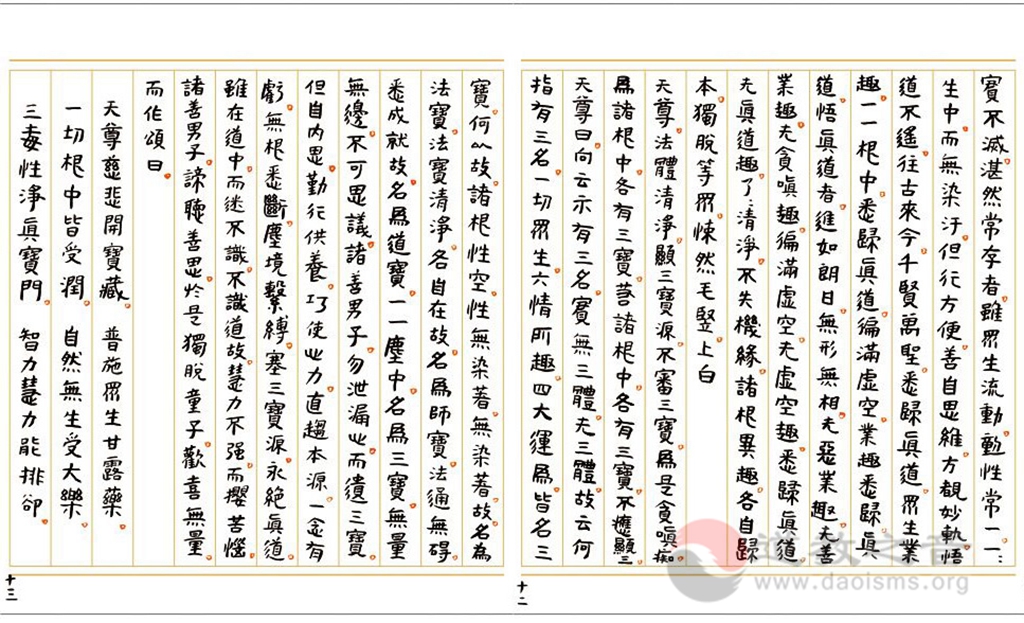 實不滅湛然常存者雖眾生流動動性常一一：
生中而無染汙但行方便善自思維方覩妙軌悟
道不遙往古來今千賢萬聖悉歸真道眾生業
趣一一根中悉歸真道徧滿虛空業趣悉歸真
道悟真道者進如朗日無形無相无惡業趣无善
業趣无貪嗔趣徧滿虛空无虛空趣悉歸真道
无真道趣了：清淨不失機緣諸根異趣各自歸
本獨脫等眾悚然毛竪上白
天尊法體清淨顯三寶源不審三寶為是貪嗔痴
為諸根中各有三寶若諸根中各有三寶不應顯三
天尊曰向云示有三名實無三體无三體故云何
指有三名一切眾生六情所趣四大運為皆名三
十二
寶何以故諸根性空性無染著無染著故名為
法寶法寶清淨各自在故名為師寶法通無碍
悉成就故名為道寶一一塵中名為三寶無量
無邊不可思議諸善男子勿泄漏此而遺三寶
但自內思勤行供養巧使此力直趨本源一念有
虧無根悉斷塵境繫縛塞三寶源永絕真道
雖在道中而迷不識不識道故慧力不强而攖苦惱
諸善男子諦聽善思於是獨脫童子歡喜無量
而作頌曰
天尊慈悲開寶藏 普施眾生甘露藥
一切根中皆受潤 自然無生受大樂
三毒性淨真寶門 智力慧力能排卻
十三
道教之音
www.daoisms.org